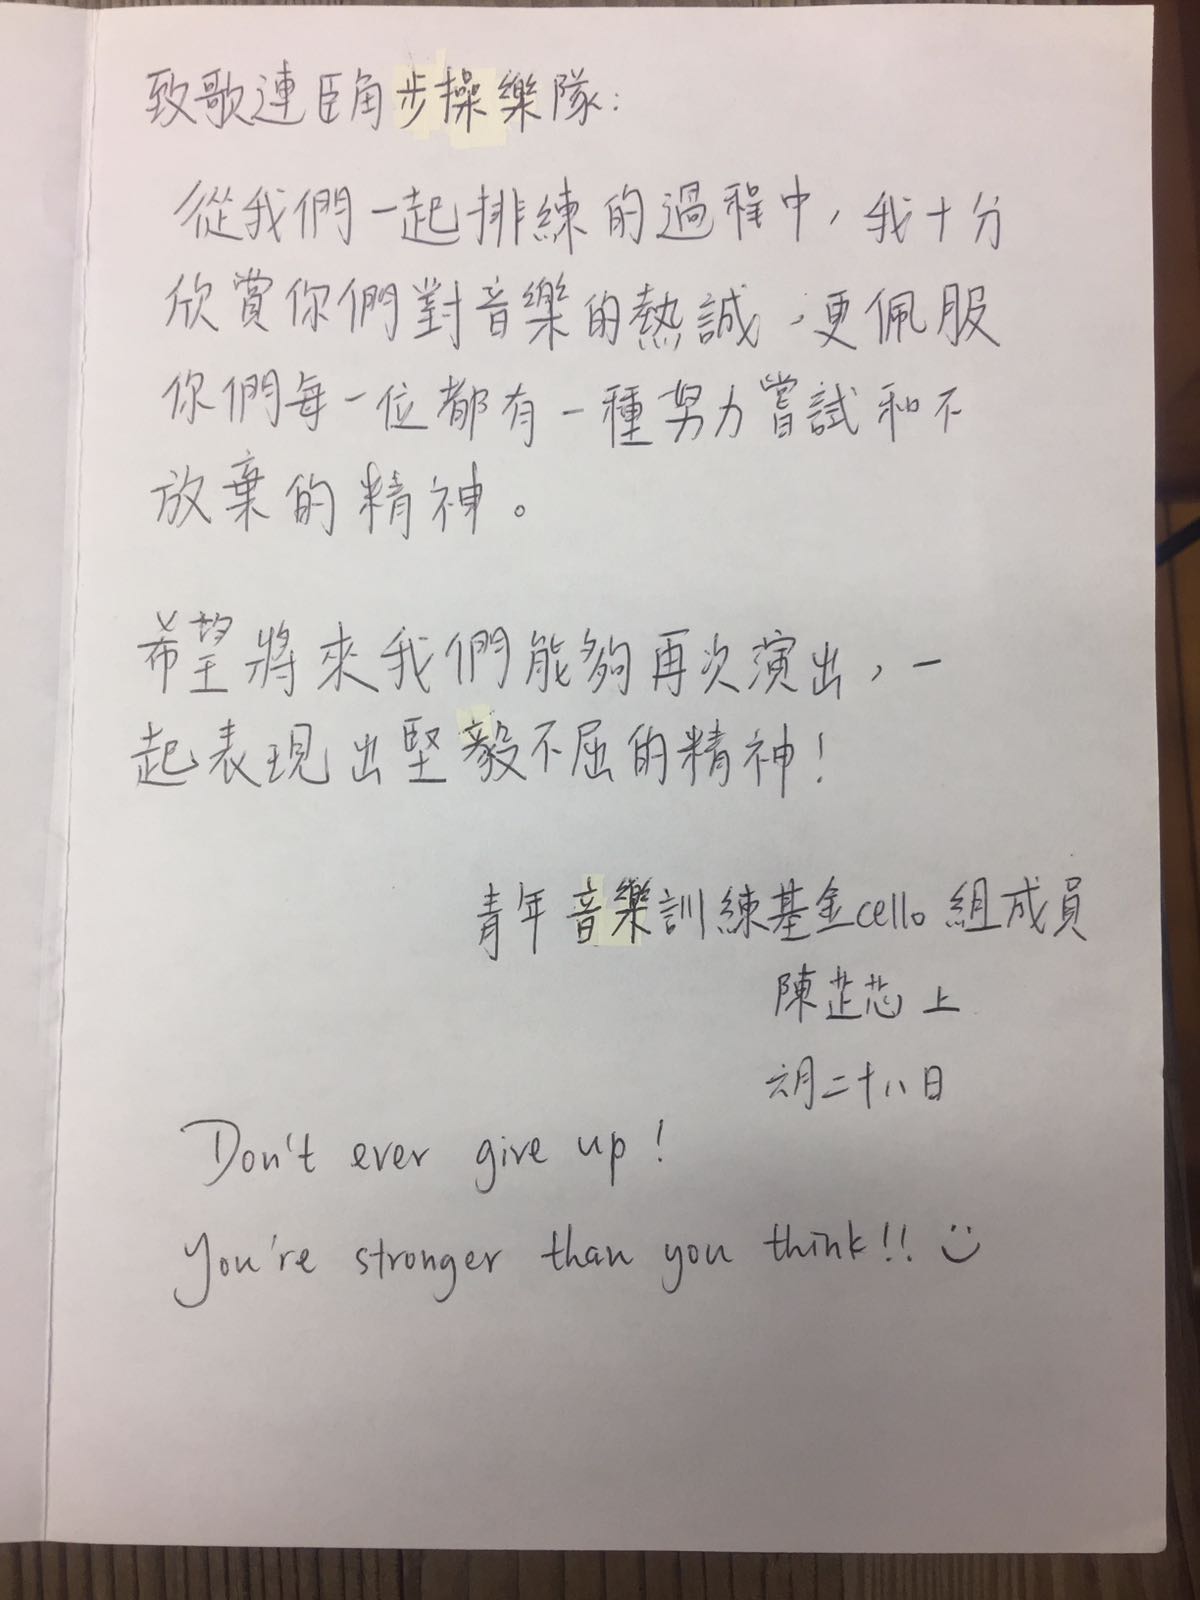 致歌連臣角步操樂隊：
從我們一起排練的過程中，我十分
欣賞你們對音樂的熱誠，更佩服
你們每一位都有一種努力嘗試和不
放棄的精神。
希望將來我們能夠再次演出，一
起表現出堅毅不屈的精神！
青年音樂訓練基金cello組成員
陳芷芯上
六月二十八日
Don't ever give up!
You're stronger than you think!! :)